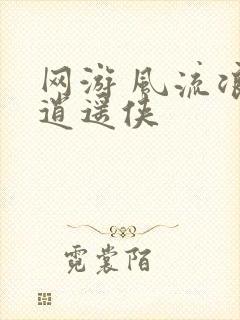 网游风流浪
逍遥侠
霓裳陌